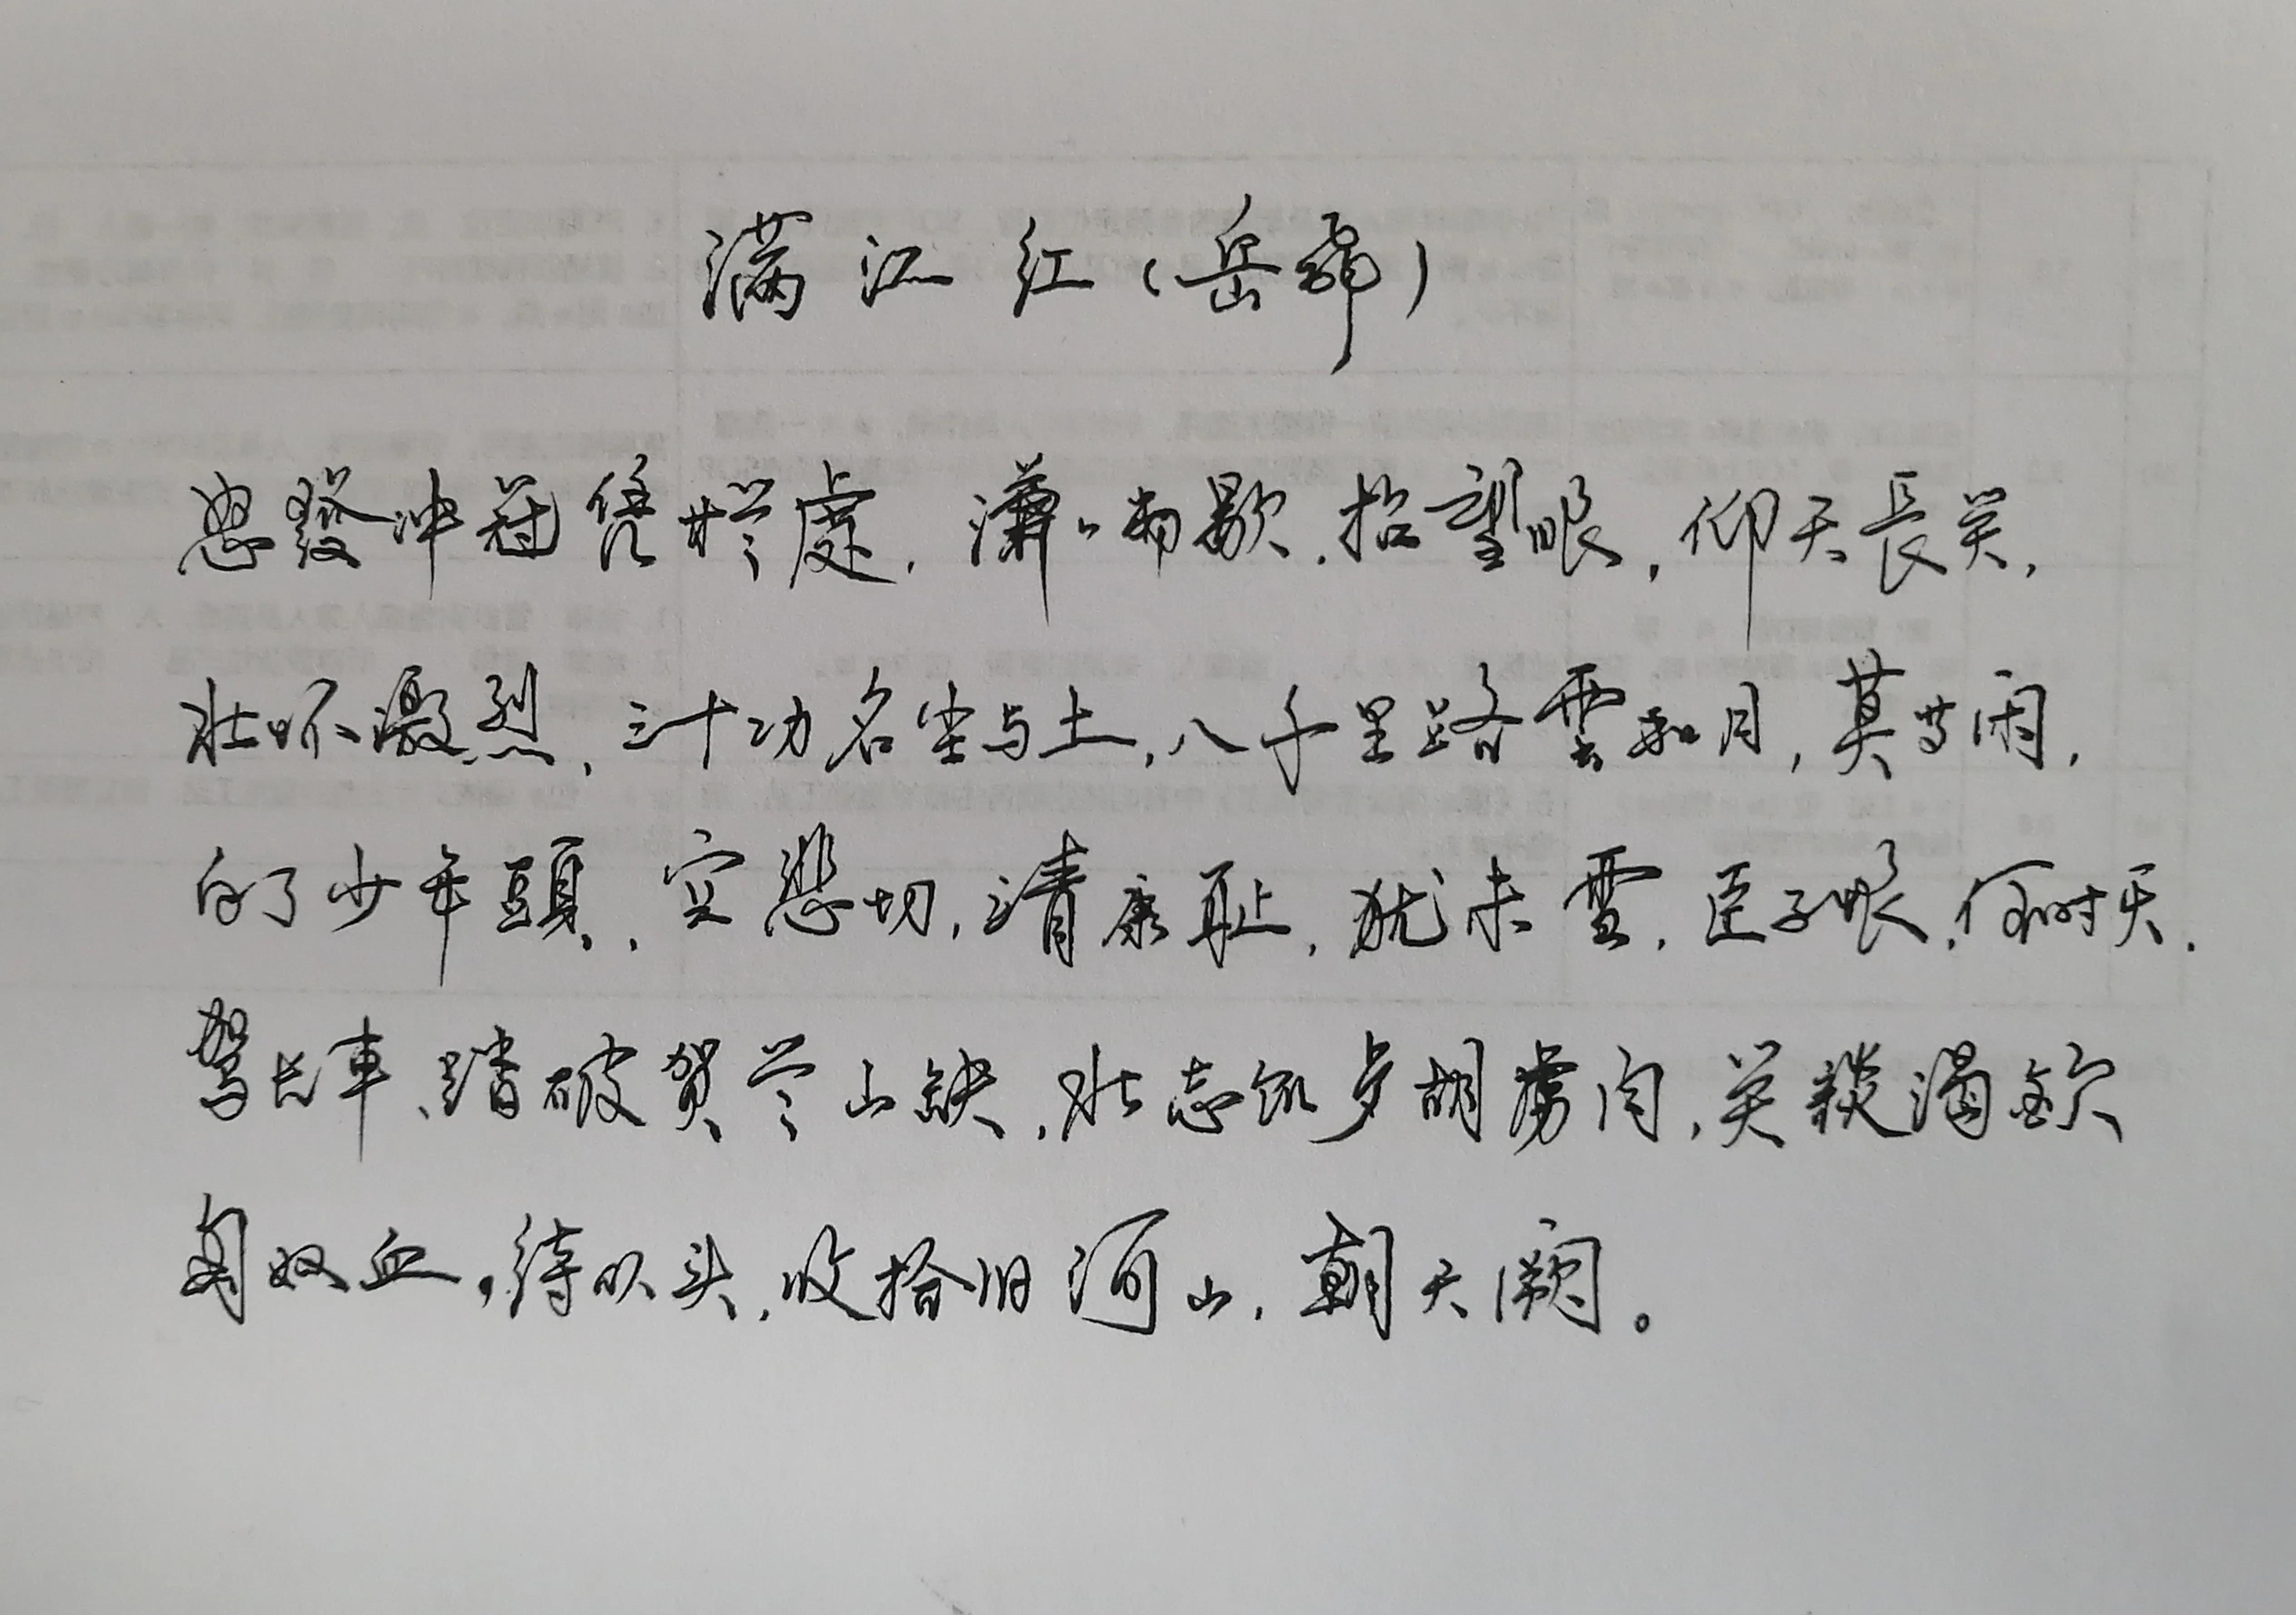 满江红(岳飛)
怒發冲冠凭栏處,潇、雨歇.抬望眼,仰天長笑,
壮怀激烈,三十功名尘与土,八千里路雲和月,莫等闲,
白了少年頭,空悲切,靖康耻,犹未雪,臣子恨,何时灭.
驾长車,踏破贺兰山缺,壮志饥歺胡虏肉,笑谈渴饮
匈奴血,待从头,收拾旧河山,朝天阙。